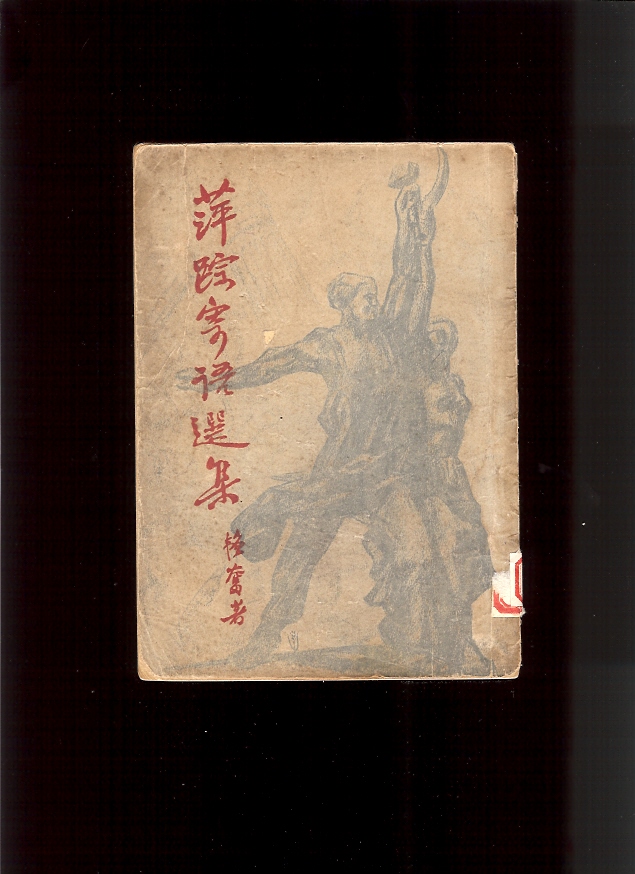 萍踪寄语選集
韜奮著